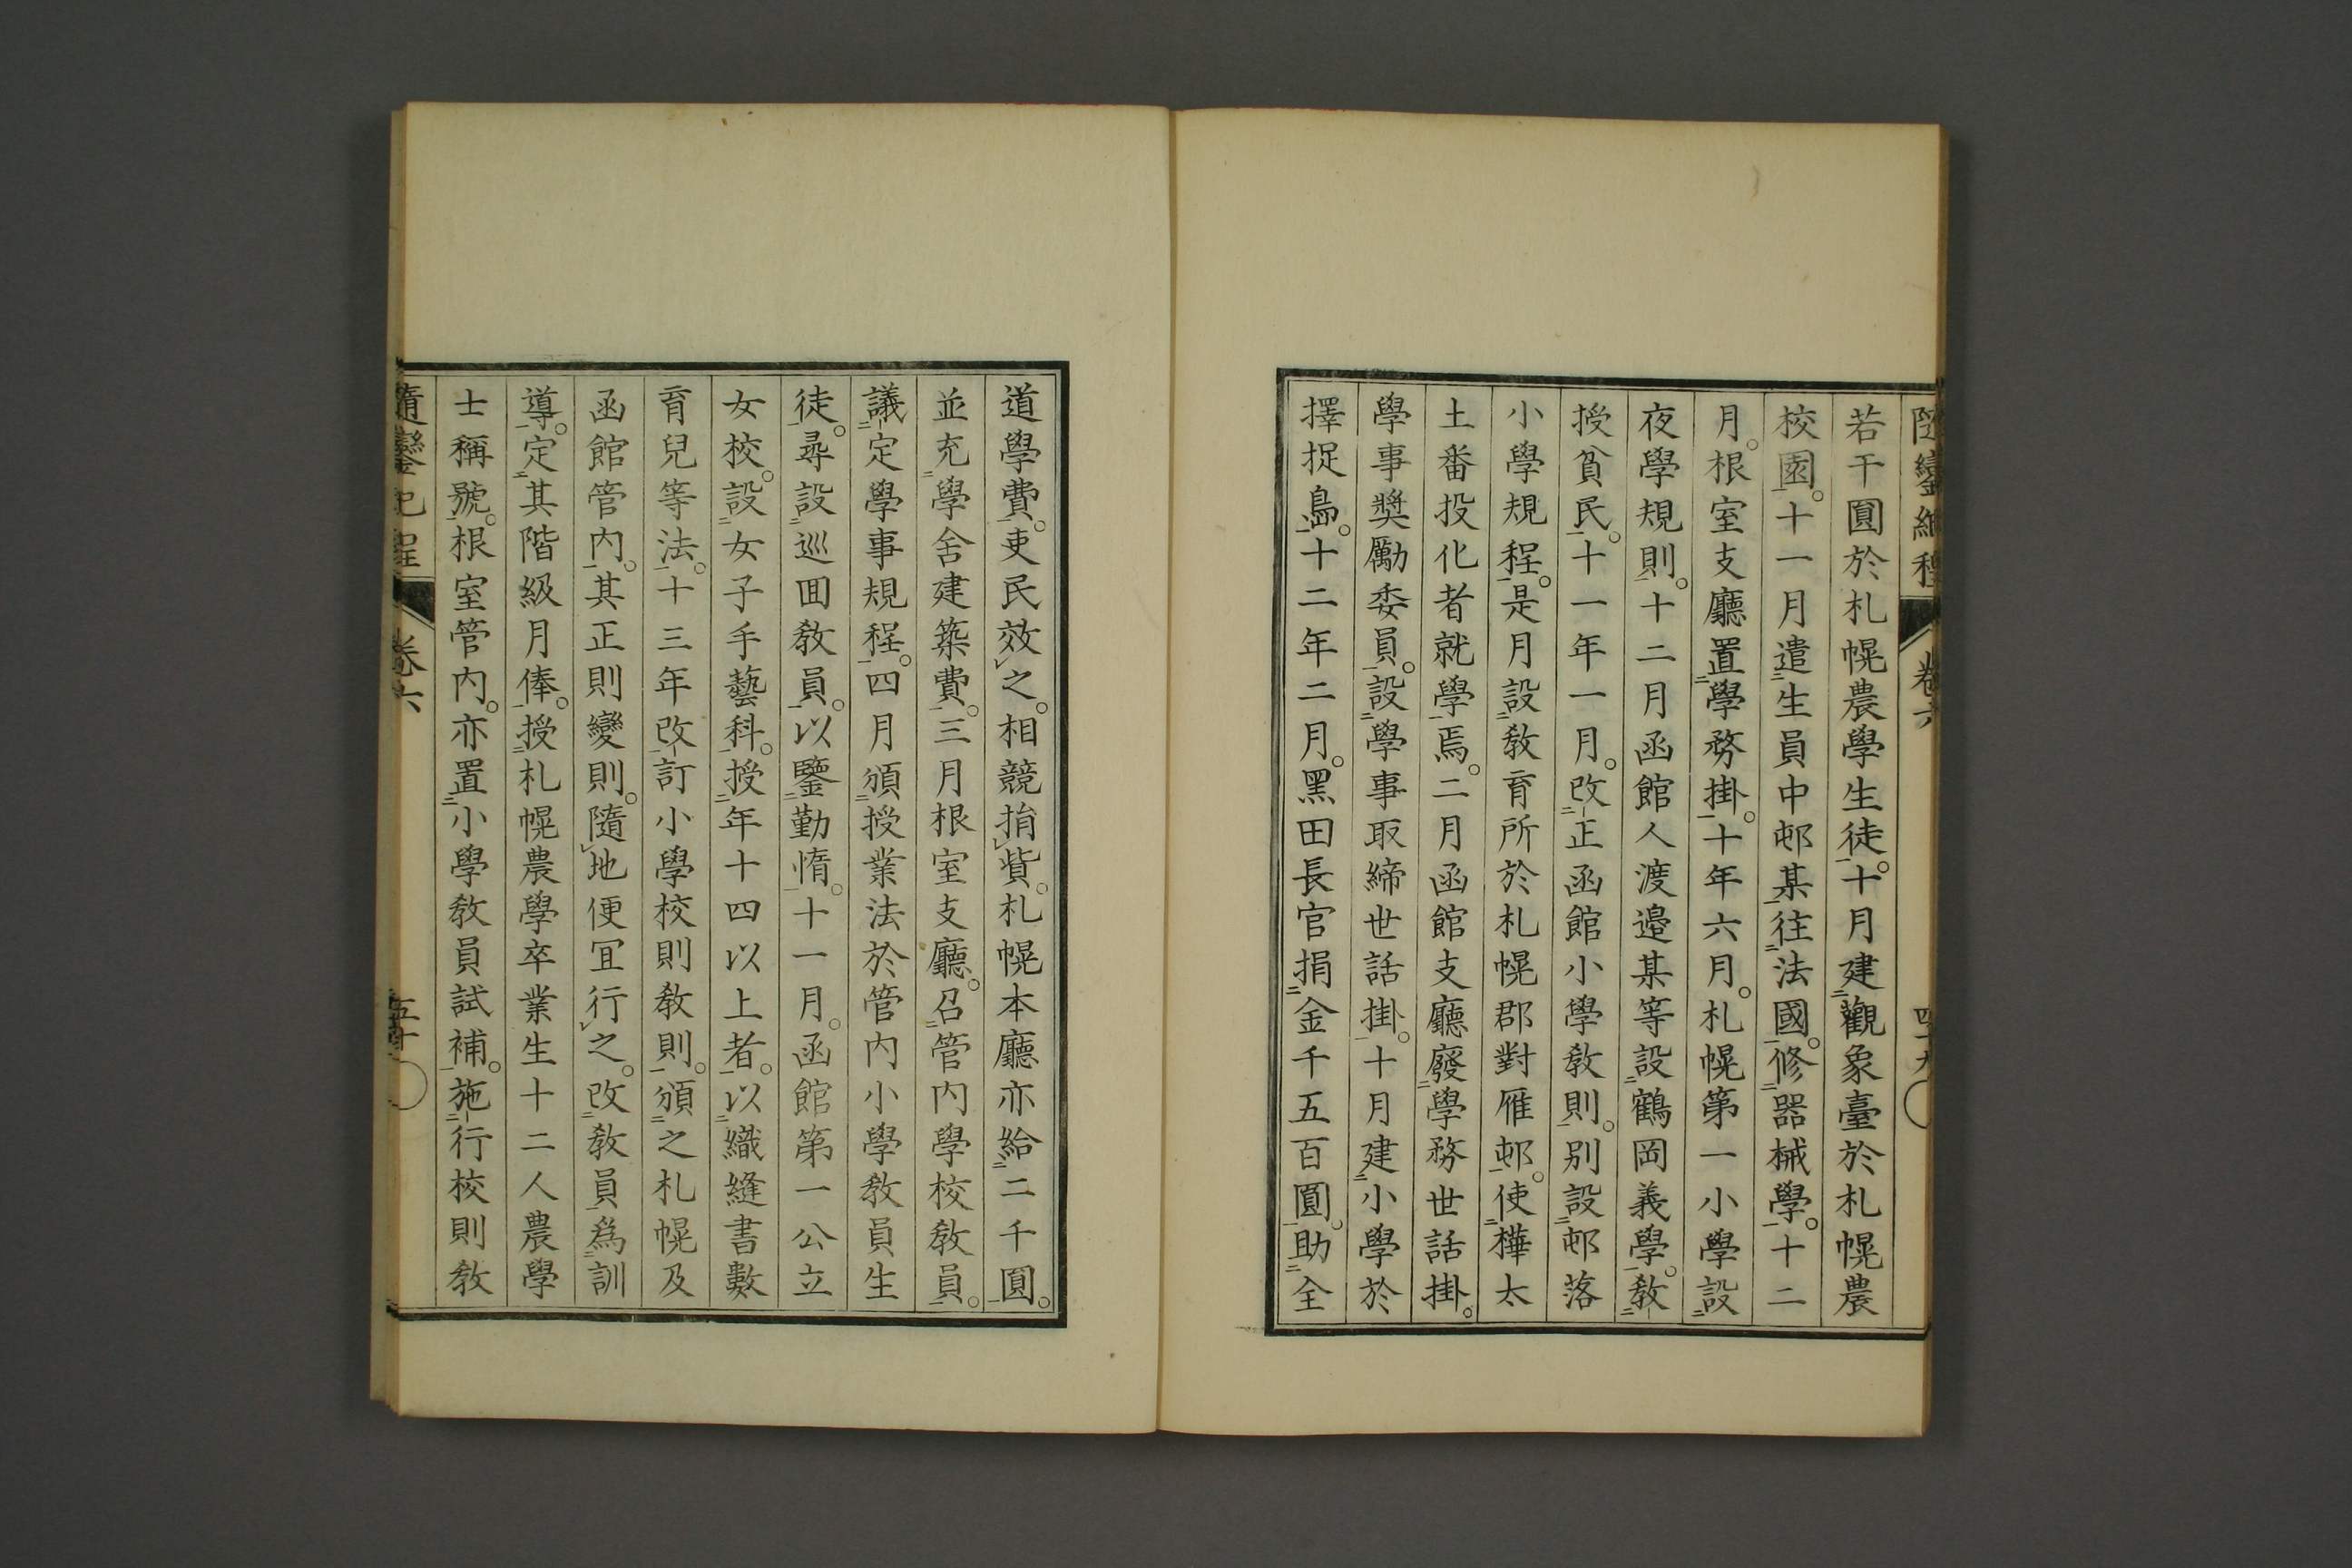 隨鑾紀程　卷六　四十九
若干圓於札幌農學生徒。十月建觀象臺於札幌農
校園。十一月遣生員中邨某往法國。修器械學。十二
月。根室支廳置學務掛。十年六月。札幌第一小學設
夜學規則。十二月函館人渡邉某等設鶴岡義學。敎
授貧民。十一年一月。改正函館小學敎則。別設邨落
小學規程。是月設敎育所於札幌郡對雁邨。使樺太
土番投化者就學焉。二月函館支廳廢學務世話掛。
學事奬勵委員。設學事取締世話掛。十月建小學於
擇捉島。十二年二月。黑田長官捐金千五百圓。助全
道學費。吏民效之。相競捐貲。札幌本廳亦給二千圓。
並充學舍建築費。三月根室支廳。召管内學校敎員。
議定學事規程。四月頒授業法於管内小學敎員生
徒。尋設巡囬敎員。以鑒勤惰。十一月。函館第一公立
女校。設女子手藝科。授年十四以上者。以織縫書數
育兒等法。十三年改訂小學校則敎則。頒之札幌及
函館管内。其正則變則。隨地便冝行之。改敎員爲訓
導。定其階級月俸。授札幌農學卒業生十二人農學
士稱號。根室管内。亦置小學敎員試補。施行校則敎
隨鑾紀程　卷六　五十